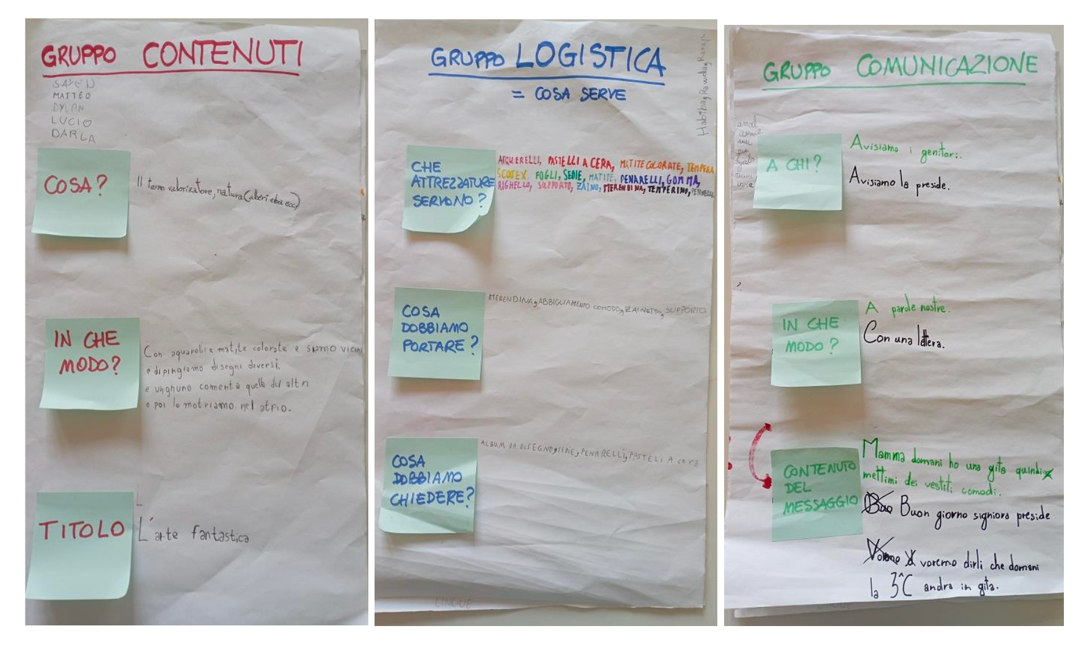 GRUPPO CONTENUTI
MATTEO
DYLAN
LUCIO
DARLA
COSA?
Il termovalorizzatore, natura (alberi erba ecc)
IN CHE
MODO?
Con aquarelli e matite colorate e siamo vicini
e dipingiamo disegni diversi.
e unghuno comenta quello dei altri
e poi lo mostriamo nel atrio.
TITOLO
L'arte fantastica
GRUPPO LOGISTICA
= COSA SERVE
CHE
ATTREZZATURE
SERVONO?
ACQUERELLI, PASTELLI A CERA, MATITE COLORATE, TEMPERA
SCOTEX FOGLI, SEDIE, MATITE, PENARELLI, GOMMA,
RIGHELLO, SUPPORTO, ZAINO, MERENDINA, TEMPERINO,
COSA
DOBBIAMO
PORTARE?
MERENDINA, ABBIGLIAMENTO COMODO, ZAINETTO, SUPPORTO
COSA
DOBBIAMO
CHIEDERE?
ALBUM DA DISEGNO, SEDIE, PENARELLI, PASTELI A CERA
GRUPPO COMUNICAZIONE
A CHI?
Avisiamo i genitori.
Avvisiamo la preside.
IN CHE
MODO?
A parole nostre.
Con una lettera.
CONTENUTO
DEL
MESSAGGIO
Mamma domani ho una gita quindi
mettimi dei vestiti comodi.
Buon giorno signiora preside
voremo dirli che domani
la 3^C andra in gita.